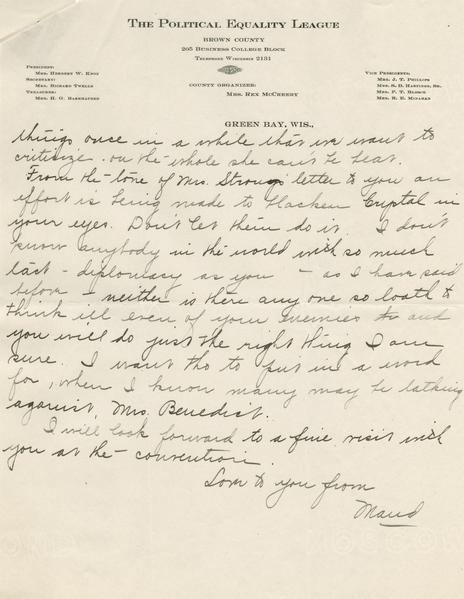 THE POLITICAL EQUALITY LEAGUE
BROWN COUNTY
205 BUSINESS COLLEGE BLOCK
TELEPHONE WISCONSIN 2131
PRESIDENT:
MRS. HERBERT W. KNOX
SECRETARY:
MRS. RICHARD TWELLS
TREASURER:
MRS. H. O. HARKHAUSEN
COUNTY ORGANIZER:
MRS. REX MCCREERY
VICE PRESIDENTS:
MRS. J. T. PHILLIPS
MRS. S. D. HASTINGS, SR.
MRS. F. T. BLESCH
MRS. R. E. MINAHAN
GREEN BAY, WIS.,
things once in a while that we want to
criticize - on the whole she can't be beat.
From the tone of Mrs. Strong's letter to you an
effort is being made to blacken Crystal in
your eyes. Don't let them do it. I don't
know anybody in the world with so much
tact - diplomacy as you - as I have said
before - neither is there any one so loath to
think ill even of your enemies and
you will do just the right thing I am
sure. I want tho to put in a word
for, when I know many may be talking
against, Mrs. Benedict.
I will look forward to a fine visit with
you at the convention.
Love to you from
Maud